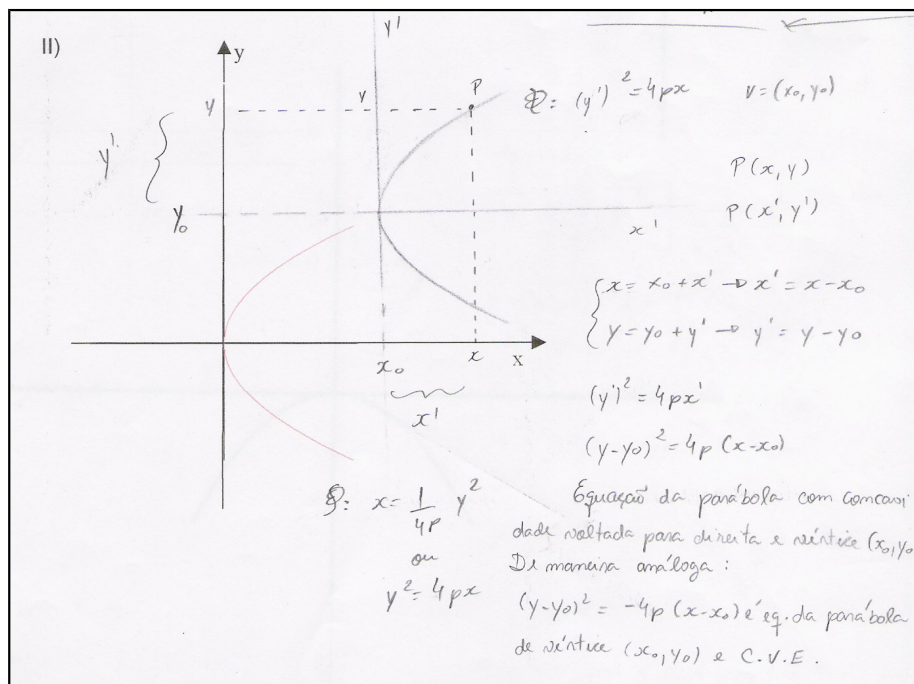 II)
y
y'
y
y
P
y'
y₀
x'
x₀
x
x
x'
P: (y')² = 4px
V = (x₀, y₀)
P(x, y)
P(x', y')
x = x₀ + x' → x' = x - x₀
y = y₀ + y' → y' = y - y₀
(y')² = 4px'
(y-y₀)² = 4p (x-x₀)
P: x = 1/4p y²
ou
y² = 4px
Equação da parábola com concavi
dade voltada para direita e vértice (x₀, y₀
De maneira análoga:
(y-y₀)² = -4p (x-x₀) é eq. da parábola
de vértice (x₀, y₀) e C.V.E.